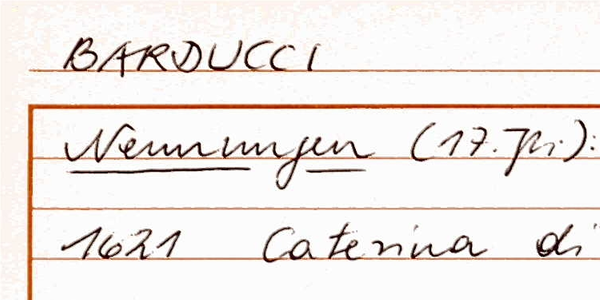 BARDUCCI
Nennungen (17. Jh.):
1621 Caterina di